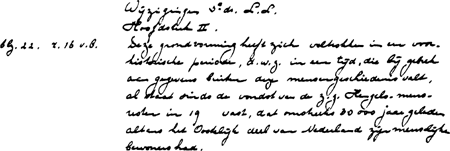 Wijzigingen v. ds. L.L.
Hoofdstuk II.
blz. 22. r. 16 v.b. Deze grondvorming heeft zich voltrokken in een voor-
historische periode, d.w.z. in een tijd, die bij gebrek
aan gegevens buiten onze menschengeschiedenis valt,
al staat sinds de vondst van de z.g. Hengelo-mens-
resten in 19 vast, dat omstreeks 30 000 jaar geleden
althans het Oostelijk deel van Nederland zijn menschelijke
bewoners had.